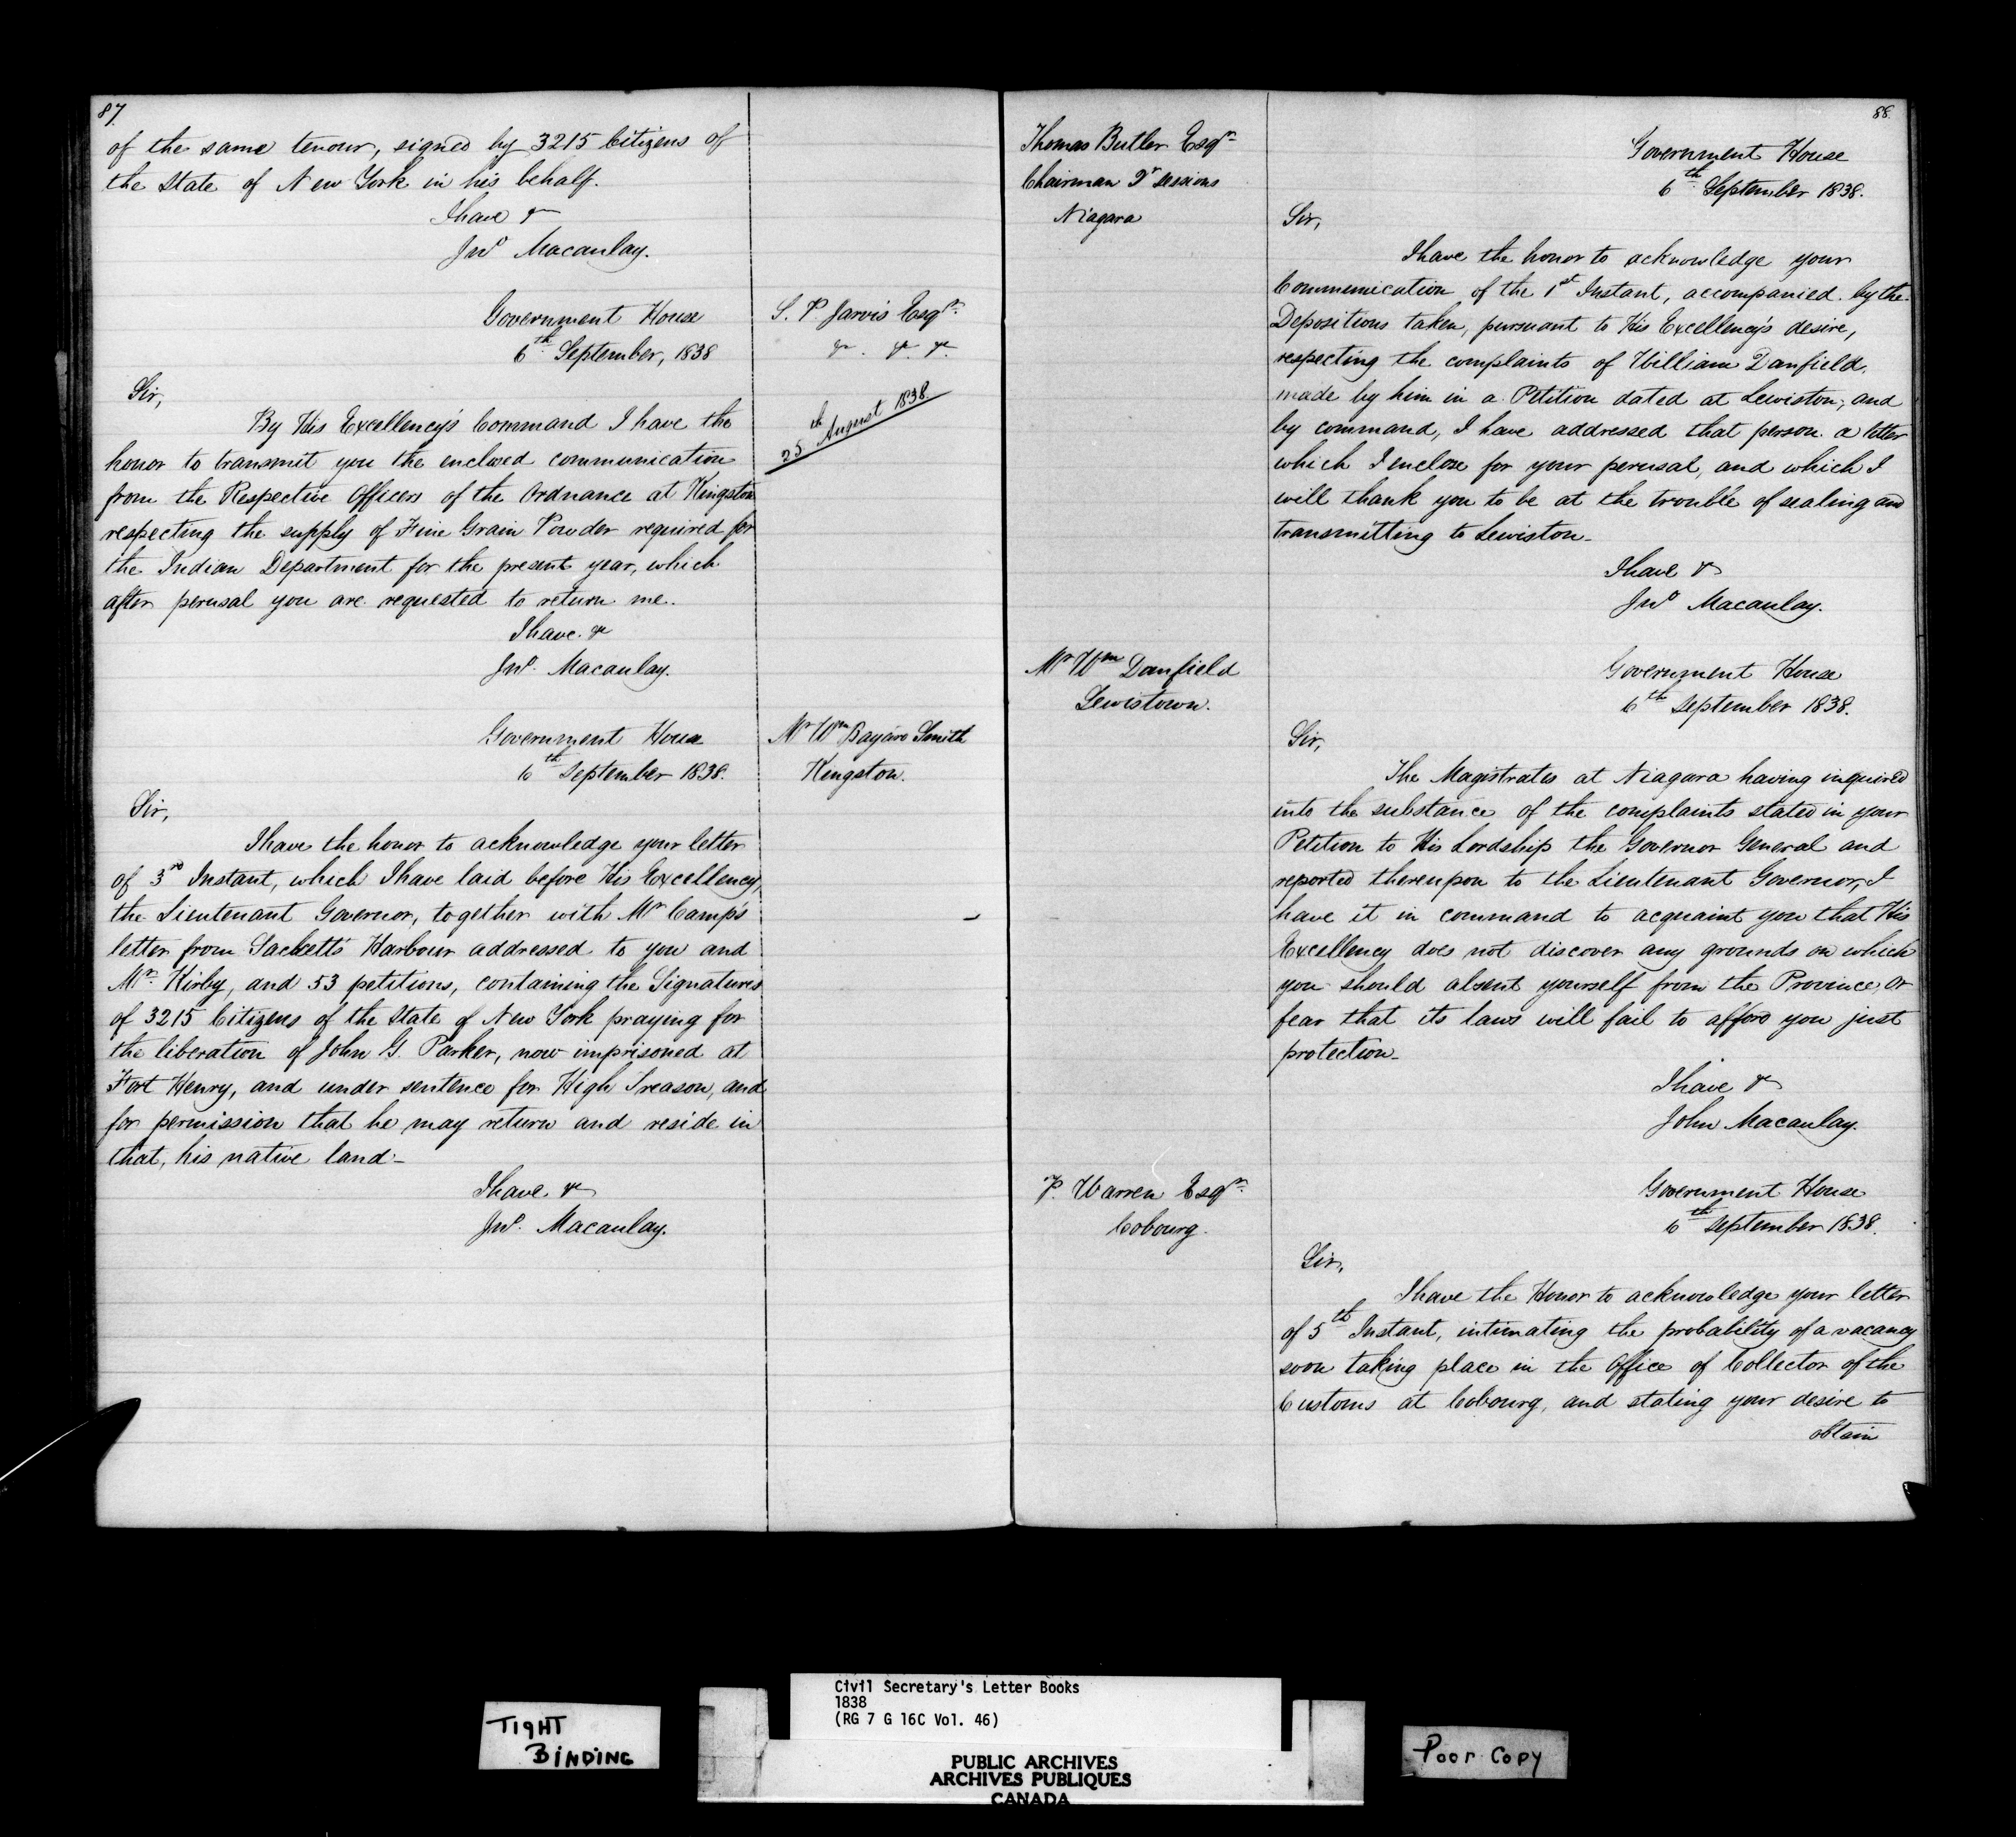 87.
of the same tenour, signed by 3215 Citizens of
the State of New York in his behalf.
I have &c
Jnº Macaulay.
Government House
6th September, 1838
S. P. Jarvis Esqr.
&c. &c. &c.
Sir,
25th August 1838.
By His Excellency's Command I have the
honor to transmit you the enclosed communication
from the Respective Officers of the Ordnance at Kingston
respecting the supply of Fine Grain Powder required for
the Indian Department for the present year, which
after perusal you are requested to return me.
I have &c
Jnº. Macaulay.
Government House
6th September 1838.
Mr Wm Bayard Smith
Kingston.
Sir,
I have the honor to acknowledge your letter
of 3rd Instant, which I have laid before His Excellency,
the Lieutenant Governor, together with Mr Camp's
letter from Sacketts Harbour addressed to you and
Mr. Kirby, and 53 petitions, containing the Signatures
of 3215 Citizens of the State of New York praying for
the liberation of John G. Parker, now imprisoned at
Fort Henry, and under sentence for High Treason, and
for permission that he may return and reside in
that, his native land-
I have &c
Jnº. Macaulay.
88.
Thomas Butler Esqr
Chairman Qr Sessions
Niagara
Government House
6th September 1838.
Sir,
I have the honor to acknowledge your
Communication of the 1st Instant, accompanied by the
Depositions taken, pursuant to His Excellency's desire,
respecting the complaints of William Danfield,
made by him in a Petition dated at Lewiston; and
by command, I have addressed that person a letter
which I enclose for your perusal, and which I
will thank you to be at the trouble of sealing and
transmitting to Lewiston-
I have &c
Jnº Macaulay.
Mr Wm Danfield
Lewistown.
Government House
6th September 1838.
Sir,
The Magistrates at Niagara having inquired
into the substance of the complaints stated in your
Petition to His Lordship the Governor General and
reported thereupon to the Lieutenant Governor, I
have it in command to acquaint you that His
Excellency does not discover any grounds on which
you should absent yourself from the Province, or
fear that its laws will fail to afford you just
protection-
I have &c
John Macaulay.
P. Warren Esqr.
Cobourg.
Government House
6th September 1838.
Sir,
I have the Honor to acknowledge your letter
of 5th Instant, intimating the probability of a vacancy
soon taking place in the Office of Collector of the
Customs at Cobourg, and stating your desire to
obtain
TIGHT
BINDING
Civil Secretary's Letter Books
1838
(RG 7 G 16C Vol. 46)
PUBLIC ARCHIVES
ARCHIVES PUBLIQUES
CANADA
Poor Copy